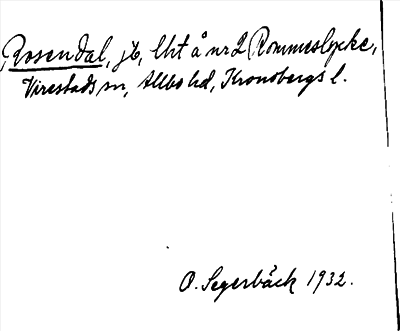 Rosendal, jb, lht å nr 2 Rommeslycke,
Virestads sn, Allbo hd, Kronobergs l.
O. Segerbäck 1932.